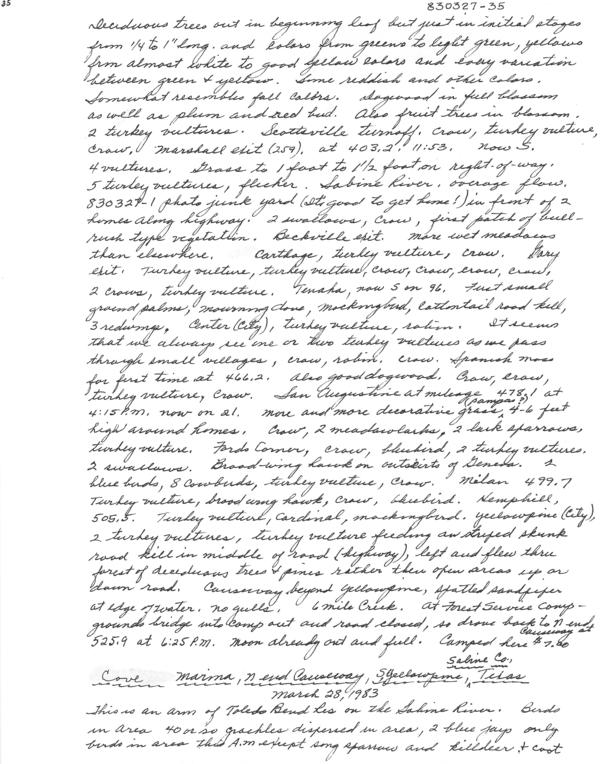 35
830327-35
Deciduous trees out in beginning leaf but just in initial stages
from 1/4 to 1" long. and colors from greens to light green, yellows
frm almost white to good yellow colors and every variation
between green & yellow. Some reddish and other colors.
Somewhat resembles fall colors. Dogwood in full blossom
as well as plum and red bud. Also fruit trees in blossom.
2 turkey vultures. Scottsville turnoff. Crow, turkey vulture,
crow, Marshall exit (259). at 403.2. 11:53. Now S.
4 vultures. Grass to 1 foot to 1 1/2 foot on right-of-way.
5 turkey vultures, flicker. Sabine River. average flow.
830327-1 photo junk yard (It's good to get home!) in front of 2
homes along highway. 2 swallows, Crow, first patch of bull-
rush type vegetation. Beckville exit. More wet meadows
than elsewhere. Carthage, turkey vulture, crow. Gary
exit. Turkey vulture, turkey vulture, crow, crow, crow, crow,
2 crows, turkey vulture. Tenaha, now S on 96. First small
ground palms, mourning dove, mockingbird, cottontail road kill,
3 redwings, Center (City), turkey vulture, robin. It seems
that we always see one or two turkey vultures as we pass
through small villages, crow, robin. crow. Spanish moss
for first time at 466.2. Also good dogwood. Crow, crow,
turkey vulture, crow. San Augustine at mileage 478.1 at
4:15 P.M. now on 21. more and more decorative grass, (pampas?) 4-6 feet
high around homes. Crow, 2 meadowlarks, 2 lark sparrows,
turkey vulture. Fords Corner, crow, bluebird, 2 turkey vultures.
2 swallows. Broad-wing hawk on outskirts of Geneva. 2
blue birds, 8 Cowbirds, turkey vulture, Crow. Milan 499.7
Turkey vulture, broad wing hawk, Crow, bluebird. Hemphill,
505.5. Turkey vulture, Cardinal, mockingbird. yellowpine (City),
2 turkey vultures, turkey vulture feeding on striped skunk
road kill in middle of road (highway), left and flew thru
forest of deciduous trees & pines rather then open areas up or
down road. Causeway beyond Yellowpine, spotted sandpiper
at edge of water. no gulls. 6 mile Creek. At Forest Service Camp-
grounds bridge into camp out and road closed, so drove back to N end
Causeway at
525.9 at 6:25 P.M. Moon already out and full. Camped here $7.80
Cove Marina, N end Causeway, S Yellowpine, Sabine Co., Texas
March 28, 1983
This is an arm of Toledo Bend Res on the Sabine River. Birds
in area 40 or so grackles dispersed in area, 2 blue jays only
birds in area this A.M except song sparrow and killdeer & coot